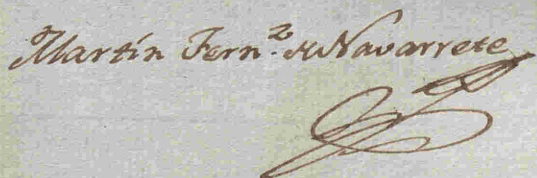 Martín Fern.z de Navarrete